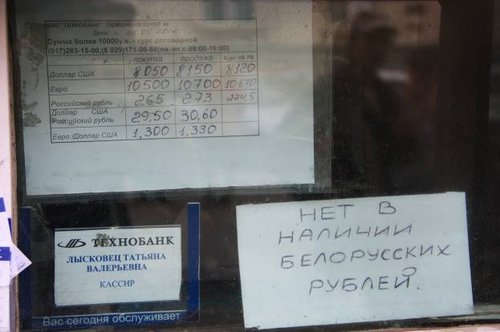 ЗАО "ТЕХНОБАНК" ОБМЕННЫЙ ПУНКТ №
Дата
Сумма более 10000у.е. - курс договорной
(017)283-15-00,(8 029)171-00-88(пн.-пт.с 09:00-16:00)
покупка продажа Курс НБ РБ
Доллар США 8050 8150 8120
Евро 10500 10700 10670
Российский рубль 265 273
Доллар США/
Российский рубль 29,50 30,60
Евро /Доллар США 1,300 1,330
ТЕХНОБАНК
ЛЫСКОВЕЦ ТАТЬЯНА
ВАЛЕРЬЕВНА
КАССИР
Вас сегодня обслуживает
НЕТ В
НАЛИЧИИ
БЕЛОРУССКИХ
РУБЛЕЙ.